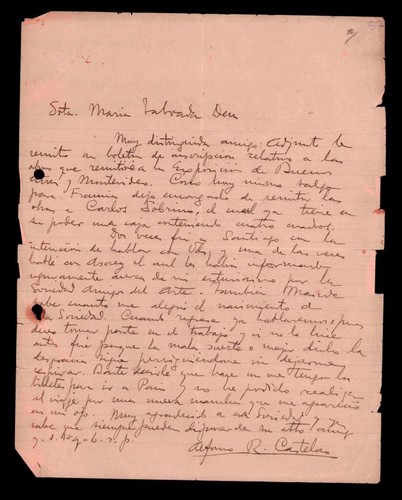 Srta. Maria Tabvada Deu
Muy distinguida amiga: Adjunto le
remito un boletin de inscripcion relativo a las
obras que remitire a la Exposicion de Buenos
Aires y Montevideo. Como hoy mismo salgo
para Francia dejo encargado de remitir las
obras a Carlos Sobrino, el cual ya tiene en
su poder una caja conteniendo cuatro cuadros.
Dos veces fui a Santiago con la
intencion de hablar con Vd. y una de las veces
hablé con Asorey el cual les habra informado
seguramente acerca de mi entusiasmo por la
Sociedad Amigos del Arte. Tambien Maside
sabe cuanto me alegró el nacimiento de
la Sociedad. Cuando regrese ya hablaremos, pues
deseo tomar parte en el trabajo y si no lo hice
antes fué porque la mala suerte o mejor dicho la
desgracia sigue persiguiendome sin dejarme
respirar. Baste decirle que hace un mes tengo los
billetes para ir a Paris y no he podido realizar
el viaje por una nueva mancha que me apareció
en un ojo. Muy agradecido a esa Sociedad y ya
sabe que siempre pueden disponer de su afto amigo
q. s. l. q. b. s. p.
Alfonso R. Castelao